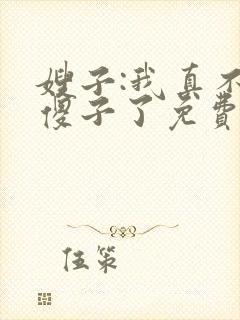 嫂子:我真不
傻子了免费
伍策